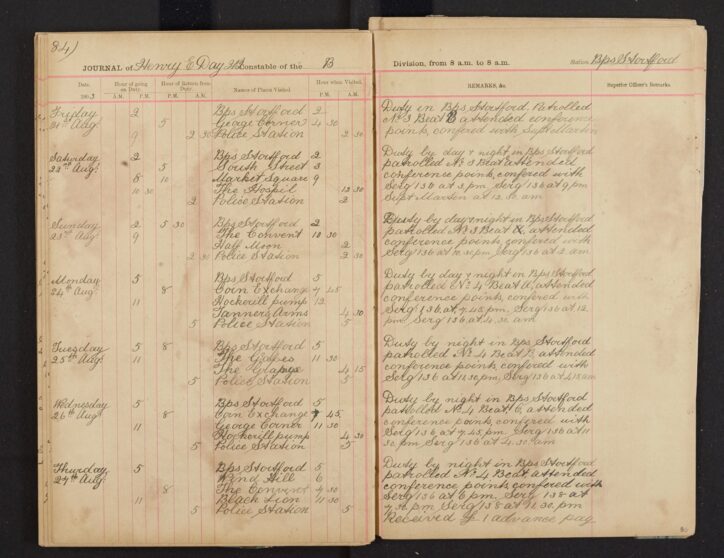 84)
JOURNAL of Henry E Day Constable of the B
Date. Hour of going on Duty. Hour of Return from Duty. Names of Places Visited Hour when Visited.
A.M. P.M. P.M. A.M. P.M. A.M.
Friday 2 Bps Stortford 2
21st Aug 5 George Corner 4 30
9 2 30 Police Station 2 30
Saturday 2 Bps Stortford 2
22nd Aug 5 South Street 3
8 10 Market Square 9
10 30 The Hospil 12 30
2 Police Station 2
Sunday 2 5 30 Bps Stortford 2
23rd Aug 9 The Convent 10 30
Half Moon 2
2 30 Police Station 2 30
Monday 5 Bps Stortford 5
24th Aug 8 Corn Exchange 7 45
11 Hockerill pump 12
Tanners Arms 4 30
5 Police Station 5
Tuesday 5 8 Bps Stortford 5
25th Aug 11 The Grapes 11 30
The Grapes 4 15
5 Police Station 5
Wednesday 5 Bps Stortford 5
26th Aug 8 Corn Exchange 7 45
11 George Corner 11 30
Hockerill pump 4 30
5 Police Station 5
Thurday 5 Bps Stortford 5
27th Aug Wind Hill 6
8 The Convent 7 30
11 Black Lion 11 30
5 Police Station 5
Division, from 8 a.m. to 8 a.m. Station Bps Stortford
REMARKS, &c. Superior Officer's Remarks.
Duty in Bps Stortford Patrolled
No 3 Beat B attended conference
points, confered with Supt Martin
Duty by day & night in Bps Stortford
patrolled No 3 Beat attended
conference points, confered with
Serg 136 at 3 pm Serg 136 at 9 pm
Supt Martin at 12.30 am
Duty by day & night in Bps Stortford
patrolled No 3 Beat attended
conference points confered with
Serg 136 at 10.30 pm, Serg 136 at 2 am
Duty by day & night in Bps Stortford
patrolled No 4 Beat attended
conference points, confered with
Serg 136 at 7.45 pm Serg 136 at 12
pm Serg 136 at 4.30 am
Duty by night in Bps Stortford
patrolled No 4 Beat attended
conference points, confered with
Serg 136 at 11.30 pm, Serg 136 at 4.15 am
Duty by night in Bps Stortford
patrolled No 4 Beat attended
conference points, confered with
Serg 136 at 7.45 pm Serg 136 at 11
30 pm Serg 136 at 4.30 am
Duty by night in Bps Stortford
patrolled No 4 Beat attended
conference points, confered with
Serg 136 at 6 pm, Serg 138 at
7.30 pm Serg 138 at 11.30 pm
Received 1 advance pay